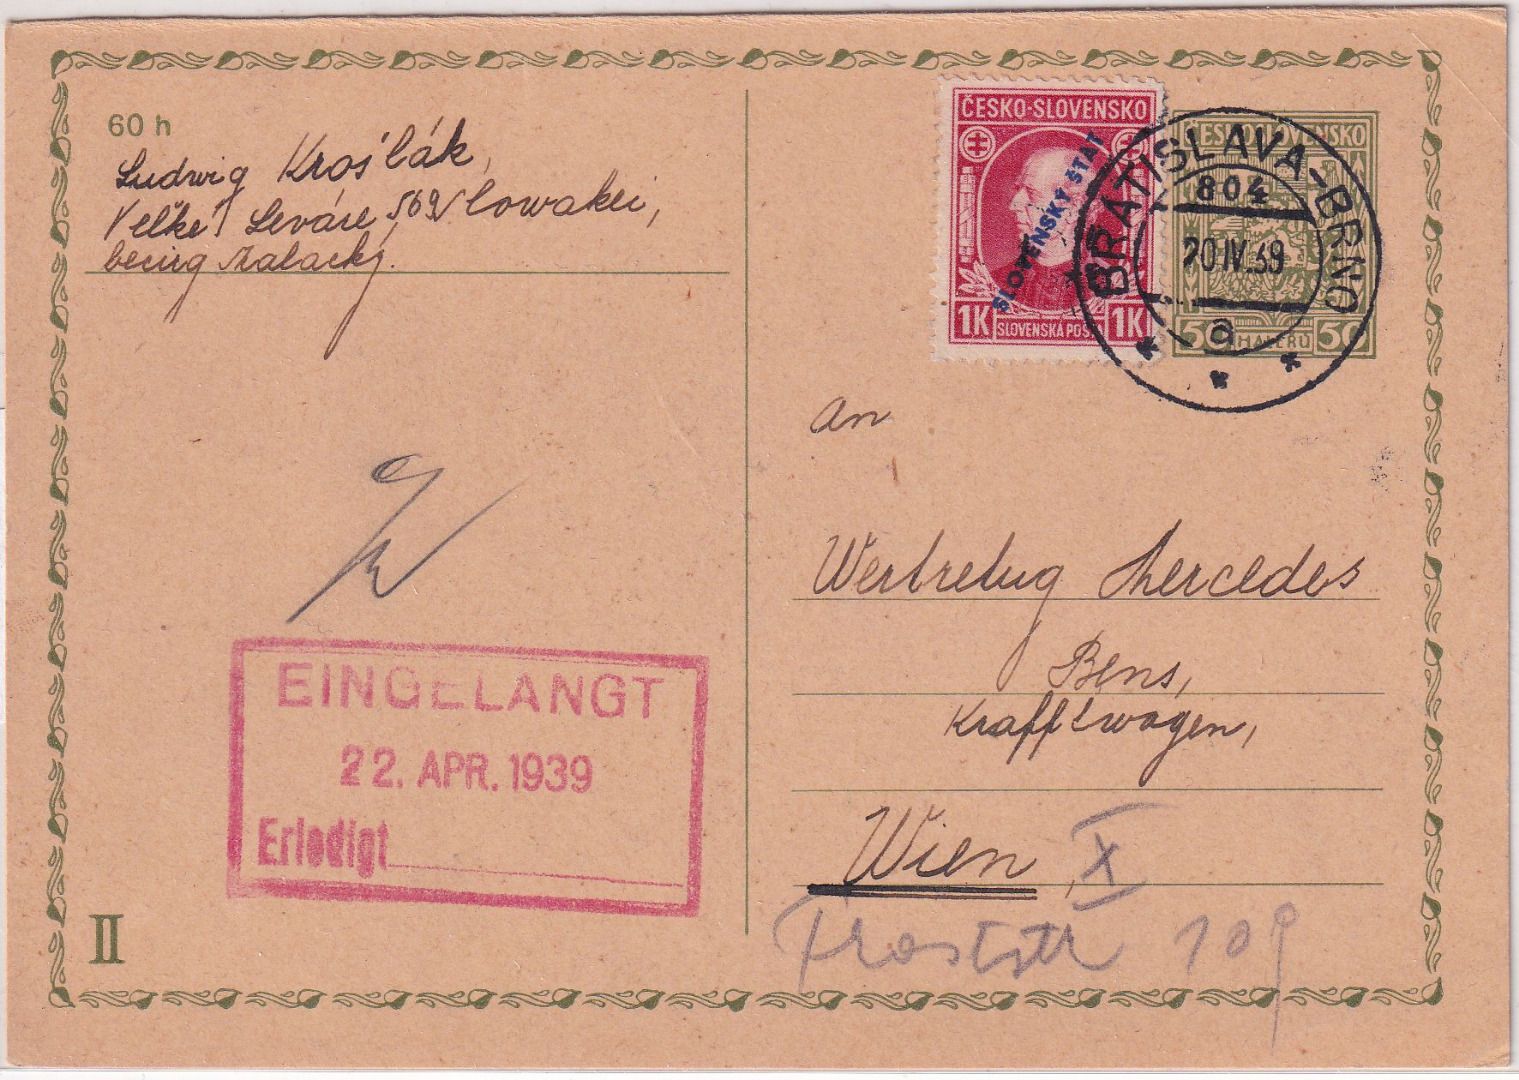 60 h
Ludwig Krošlák,
Veľké Leváre 569 Slowakei,
bezirg Malacky.
ČESKO-SLOVENSKO
SLOVENSKÝ ŠTÁT
1K SLOVENSKÁ POŠTA 1K
ČESKO-SLOVENSKO
50 HALÉŘŮ 50
BRATISLAVA-BRNO
804
20 IV.39
a
An
Wertretug Mercedes
Bens,
Krafftwagen,
Wien, X
Troststr 109
EINGELANGT
22. APR. 1939
Erledigt
II